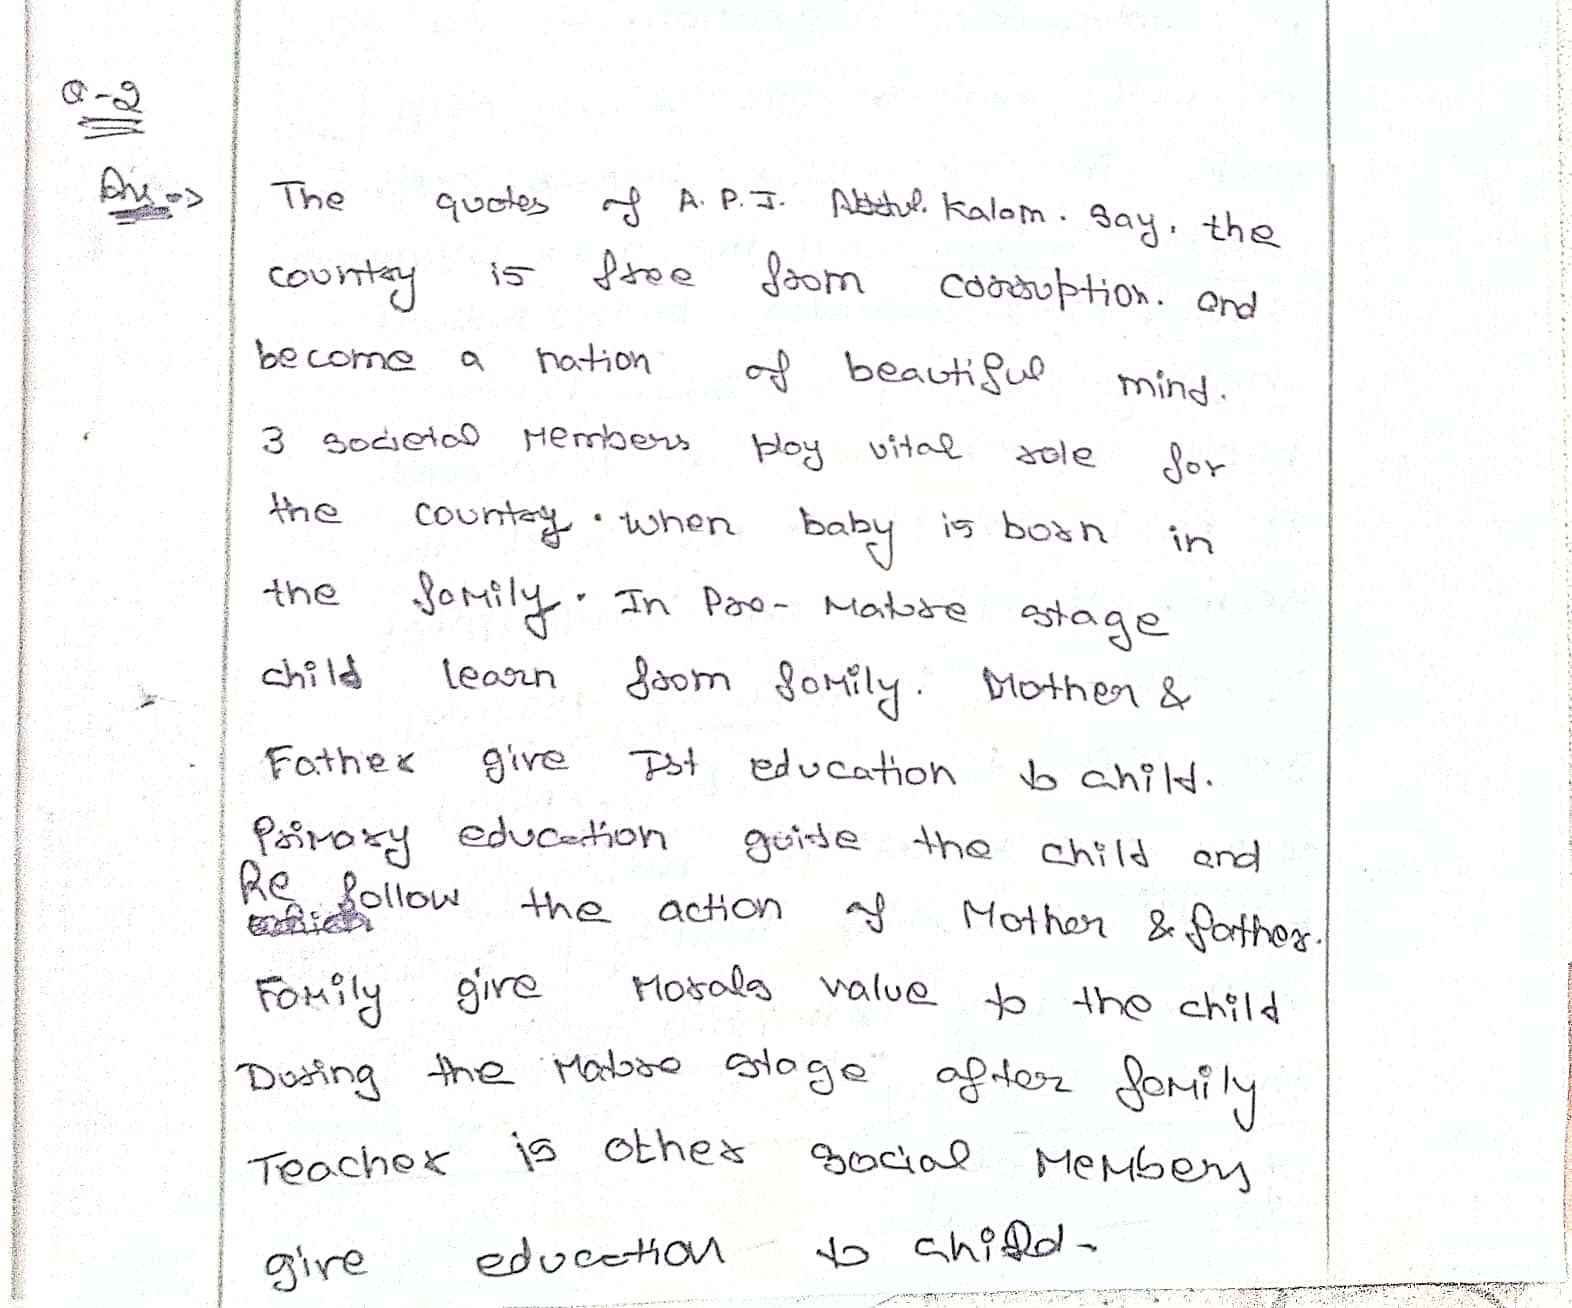 Q-2
Ans => The quotes of A. P. J. Abdul. Kalam. Say, the
country is free from corruption. and
become a nation of beautiful mind.
3 societal Members play vital role for
the country. when baby is born in
the family. In Pro- Mature stage
child learn from family. Mother &
Father give Ist education to child.
Primary education guide the child and
Re follow the action of Mother & father.
Family give Morals value to the child
During the Mature stage after family
Teacher is other social Members
give education to child-